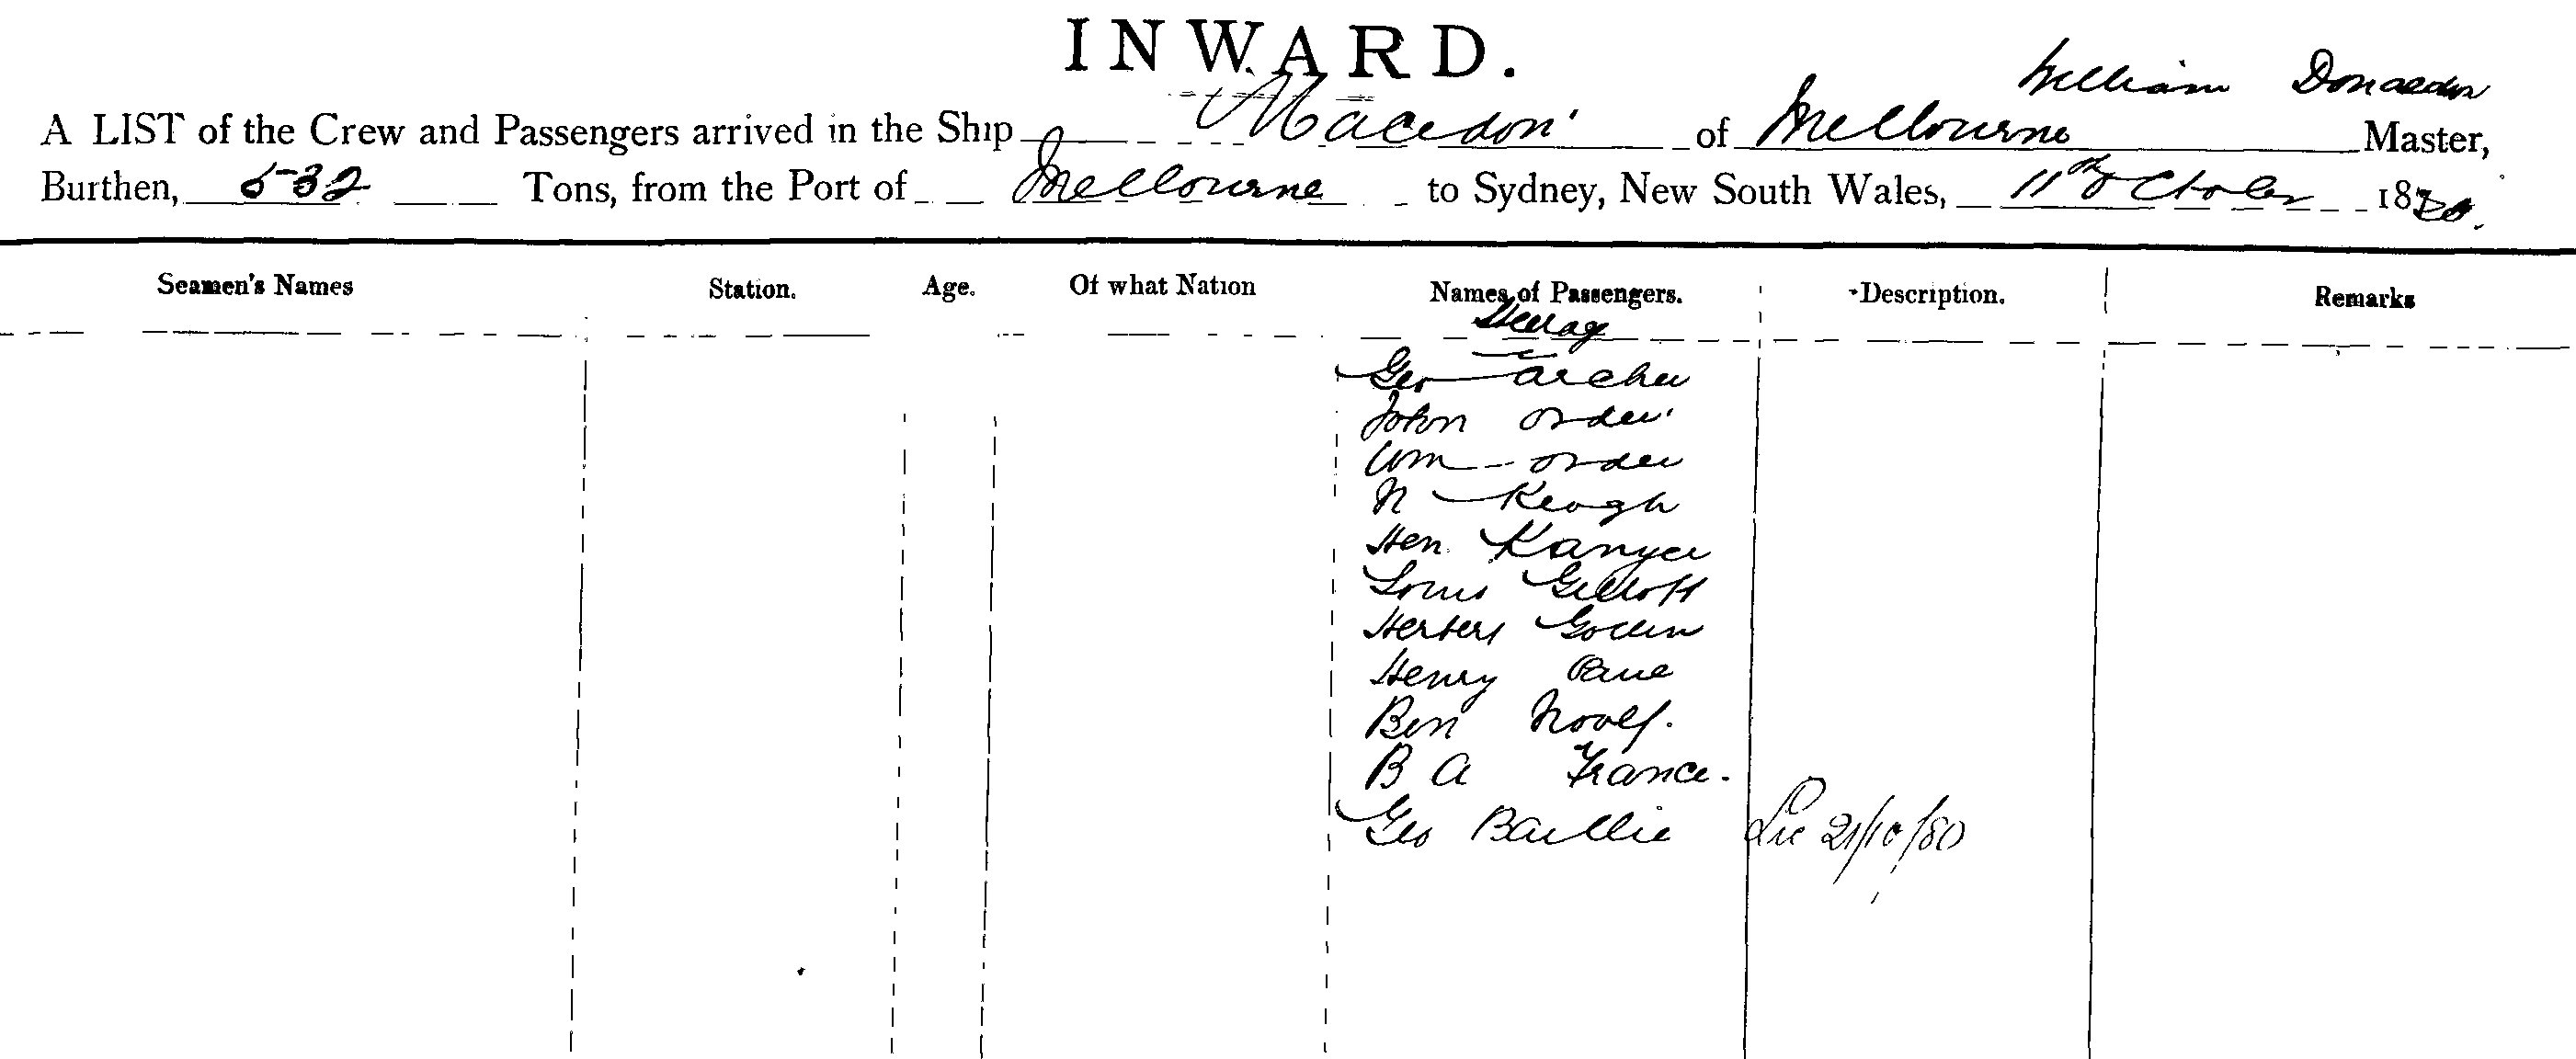 INWARD.
William Donaldson
A LIST of the Crew and Passengers arrived in the Ship Macedon of Melbourne Master,
Burthen, 532 Tons, from the Port of Melbourne to Sydney, New South Wales, 11th October 1880.
Seamen's Names Station. Age. Of what Nation Names of Passengers. Description. Remarks
Geo Archer
John Order
Wm Order
N Keogh
Hen Kanyer
Louis Gillott
Herbert Gollin
Henry Pane
Ben
B A France.
Geo Baillie 21/10/80